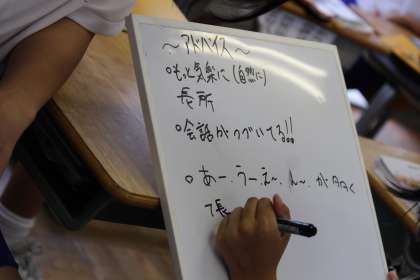 ～アドバイス～
○もっと気楽に(自然に)
長所
○会話がつづいてる!!
○あー、うー、え～、ん～、が多く